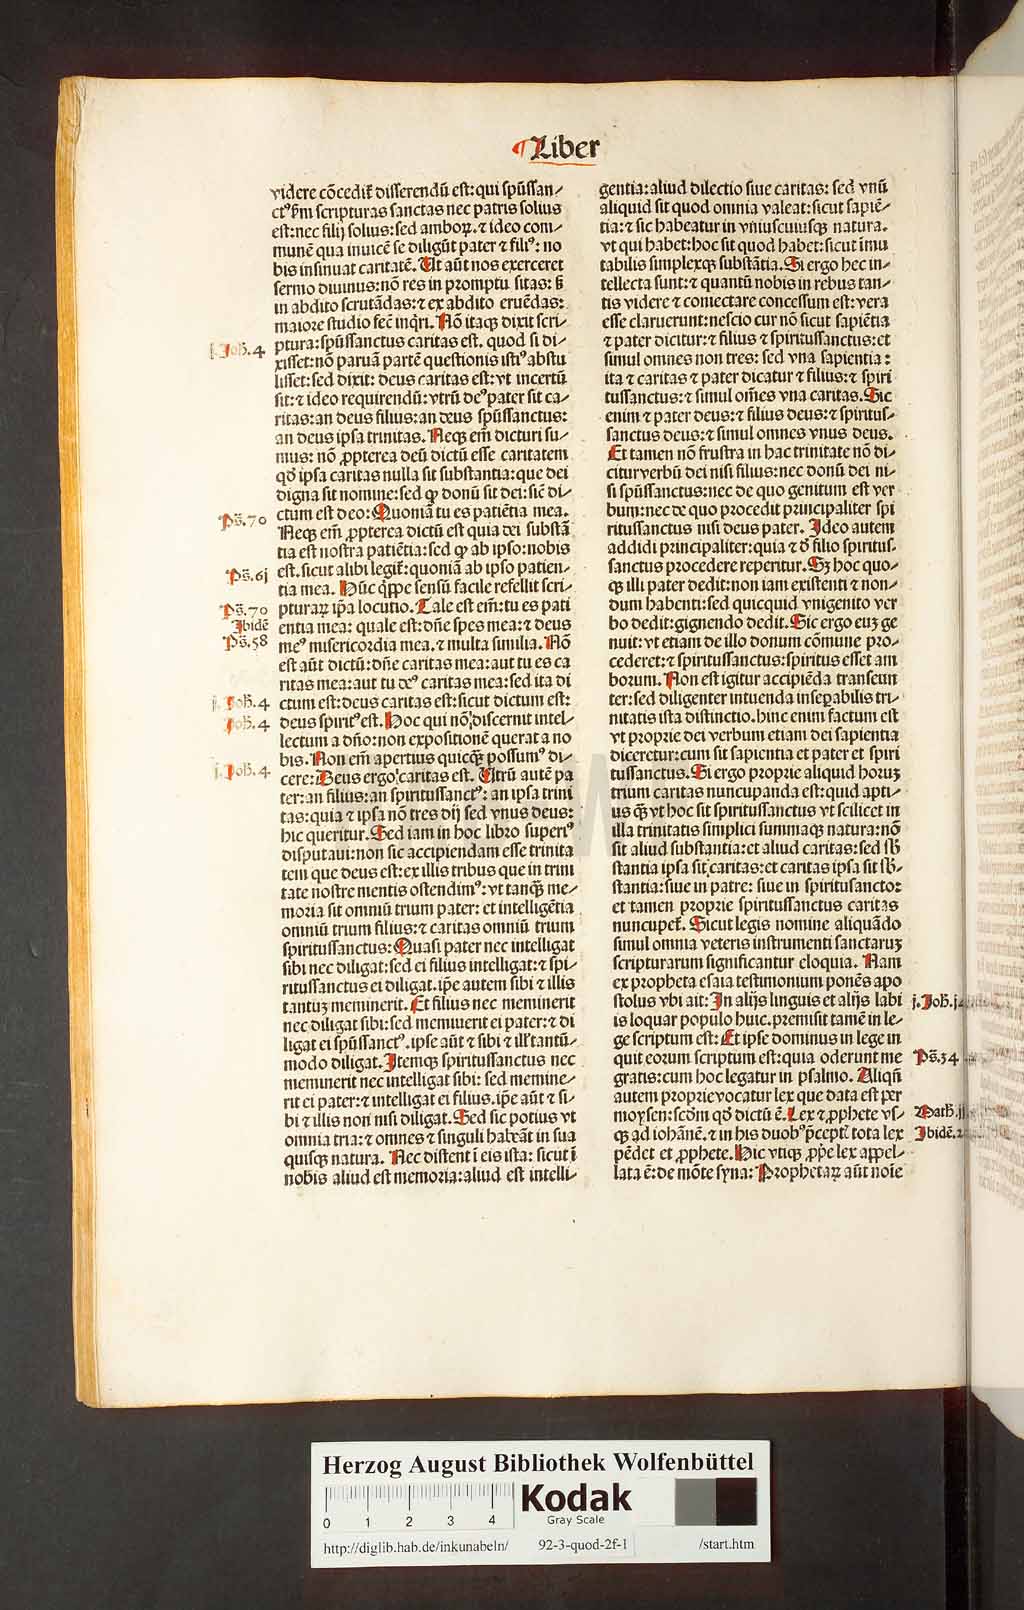 ¶Liber
videre cōcedit᷑ disserendū est: qui spūssan⸗
ctꝰ ẜm scripturas sanctas nec patris solius
est: nec filij solius: sed amboꝝ. ⁊ ideo com⸗
munē qua inuicē se diligūt pater ⁊ filiꝰ: no
bis insinuat caritatē. Ut aūt nos exerceret
sermo diuinus: nō res in promptu sitas: ẜ
in abdito scrutādas: ⁊ ex abdito eruēdas:
maiore studio fec̄ inq̇ri. Nō itaqꝫ dixit scri⸗
ptura: spūssanctus caritas est. quod si di⸗
xisset: nō paruā partē questionis istꝰ abstu
lisset: sed dixit: deus caritas est: vt incertū
sit: ⁊ ideo requirendū: vtrū deꝰ pater sit ca⸗
ritas: an deus filius: an deus spūssanctus:
an deus ipsa trinitas. Neqꝫ em̄ dicturi su⸗
mus: nō ꝓpterea deū dictū esse caritatem
qd̓ ipsa caritas nulla sit substantia: que dei
digna sit nomine: sed ꝙ donū sit dei: sic̄ di⸗
ctum est deo: Quoniā tu es patiētia mea.
Neqꝫ em̄ ꝓpterea dictū est quia dei substā
tia est nostra patiētia: sed ꝙ ab ipso: nobis
est. sicut alibi legit᷑: quoniā ab ipso patien⸗
tia mea. Hūc q̇ppe sensū facile refellit scri⸗
pturaꝝ ip̄a locutio. Tale est em̄: tu es pati
entia mea: quale est: dn̄e spes mea: ⁊ deus
meꝰ misericordia mea. ⁊ multa similia. Nō
est aūt dictū: dn̄e caritas mea: aut tu es ca
ritas mea: aut tu deꝰ caritas mea: sed ita di
ctum est: deus caritas est: sicut dictum est:
deus spiritꝰ est. Hoc qui nō discernit intel⸗
lectum a dn̄o: non expositionē querat a no
bis. Non em̄ apertius quicꝙ̄ possumꝰ di⸗
cere: Deus ergo caritas est. Utrū autē pa
ter: an filius: an spiritussanctꝰ: an ipsa trini
tas: quia ⁊ ipsa nō tres dij sed vnus deus:
hic queritur. Sed iam in hoc libro superiꝰ
disputaui: non sic accipiendam esse trinita
tem que deus est: ex illis tribus que in trini
tate nostre mentis ostendimꝰ: vt tanꝙ̄ me⸗
moria sit omniū trium pater: et intelligētia
omniū trium filius: ⁊ caritas omniū trium
spiritussanctus: Quasi pater nec intelligat
sibi nec diligat: sed ei filius intelligat: ⁊ spi⸗
ritussanctus ei diligat. ip̄e autem sibi ⁊ illis
tantuꝫ meminerit. Et filius nec meminerit
nec diligat sibi: sed meminerit ei pater: ⁊ di
ligat ei spūssanctꝰ. ipse aūt ⁊ sibi ⁊ ill᷑ tantū⸗
modo diligat. Itemqꝫ spiritussanctus nec
meminerit nec intelligat sibi: sed memine⸗
rit ei pater: ⁊ intelligat ei filius. ip̄e aūt ⁊ si⸗
bi ⁊ illis non nisi diligat. Sed sic potius vt
omnia tria: ⁊ omnes ⁊ singuli habeāt in sua
quisqꝫ natura. Nec distent ī eis ista: sicut ī
nobis aliud est memoria: aliud est intelli⸗
j. Joh̄. 4
Ps̄. 70
Ps̄. 6j
Ps̄. 70
Ibidē
Ps̄. 58
j. Joh̄. 4
Joh̄. 4
j. Joh̄. 4
gentia: aliud dilectio siue caritas: sed vnū
aliquid sit quod omnia valeat: sicut sapiē⸗
tia: ⁊ sic habeatur in vniuscuiusqꝫ natura.
vt qui habet: hoc sit quod habet: sicut īmu
tabilis simplexqꝫ substātia. Si ergo hec in⸗
tellecta sunt: ⁊ quantū nobis in rebus tan⸗
tis videre ⁊ coniectare concessum est: vera
esse claruerunt: nescio cur nō sicut sapiētia
⁊ pater dicitur: ⁊ filius ⁊ spiritussanctus: et
simul omnes non tres: sed vna sapientia:
ita ⁊ caritas ⁊ pater dicatur ⁊ filius: ⁊ spiri
tussanctus: ⁊ simul om̄es vna caritas. Sic
enim ⁊ pater deus: ⁊ filius deus: ⁊ spiritus⸗
sanctus deus: ⁊ simul omnes vnus deus.
Et tamen nō frustra in hac trinitate nō di⸗
citur verbū dei nisi filius: nec donū dei ni⸗
si spūssanctus: nec de quo genitum est ver
bum: nec de quo procedit principaliter spi
ritussanctus nisi deus pater. Ideo autem
addidi principaliter: quia ⁊ d̓ filio spiritus⸗
sanctus procedere reperitur. Sꝫ hoc quo⸗
qꝫ illi pater dedit: non iam existenti ⁊ non⸗
dum habenti: sed quicquid vnigenito ver
bo dedit: gignendo dedit. Sic ergo euꝫ ge
nuit: vt etiam de illo donum cōmune pro⸗
cederet: ⁊ spiritussanctus: spiritus esset am
borum. Non est igitur accipiēda transeun
ter: sed diligenter intuenda insepabilis tri⸗
nitatis ista distinctio. hinc enim factum est
vt proprie dei verbum etiam dei sapientia
diceretur: cum sit sapientia et pater et spiri
tussanctus. Si ergo proprie aliquid horuꝫ
trium caritas nuncupanda est: quid apti⸗
us ꝙ̄ vt hoc sit spiritussanctus vt scilicet in
illa trinitatis simplici summaqꝫ natura: nō
sit aliud substantia: et aliud caritas: sed sb̄
stantia ipsa sit caritas: et caritas ipsa sit sb̄⸗
stantia: siue in patre: siue in spiritusancto:
et tamen proprie spiritussanctus caritas
nuncupet᷑. Sicut legis nomine aliquādo
simul omnia veteris instrumenti sanctaruꝫ
scripturarum significantur eloquia. Nam
ex propheta esaia testimonium ponēs apo
stolus vbi ait: In alijs linguis et alijs labi
is loquar populo huic. premisit tamē in le⸗
ge scriptum est: Et ipse dominus in lege in
quit eorum scriptum est: quia oderunt me
gratis: cum hoc legatur in psalmo. Aliqn̄
autem proprie vocatur lex que data est per
moysen: scd̄m qd̓ dictū ē. Lex ⁊ ꝓphete vs⸗
qꝫ ad iohānē. ⁊ in his duobꝰ p̄cept᷑ tota lex
pēdet et ꝓphete. Hic vtiqꝫ ꝓp̄e lex appel⸗
lata ē: de mōte syna: Prophetaꝝ aūt noīe
j. Joh̄. j4
Ps̄. 34
Math̄. jj
Ibidē. 2
Herzog August Bibliothek Wolfenbüttel
0 1 2 3 4
Kodak
Gray Scale
http://diglib.hab.de/inkunabeln/ 92-3-quod-2f-1 /start.htm